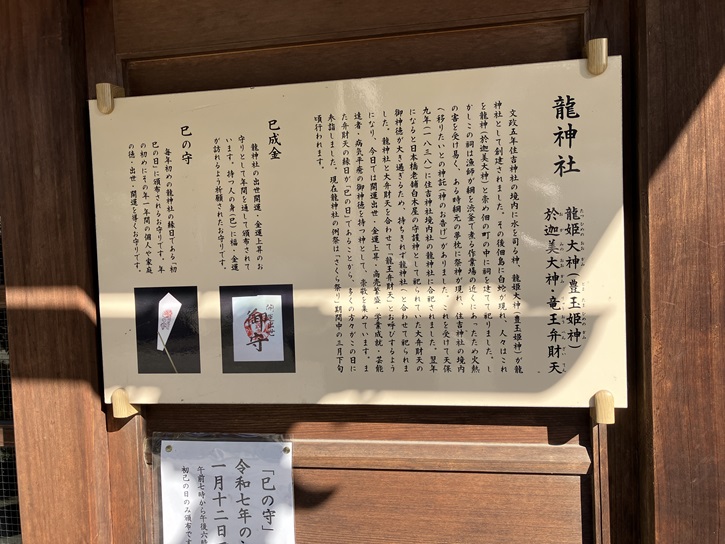 龍神社
龍姫大神(豊玉姫神)
於迦美大神・竜王弁財天
文政五年住吉神社の境内に水を司る神、龍姫大神(豊玉姫神)が龍
神社として創建されました。その後佃島に白蛇が現れ、人々はこれ
を龍神(於迦美大神)と崇め佃の町の中に祠を建てて祀りました。し
かしこの祠は漁師が網を渋釜で煮る作業場の近くにあったため火熱
の害を受け易く、ある時網元の夢枕に祭神が現れ、住吉神社の境内
へ移りたいとの神託(神のお告げ)がありました。これを受けて天保
九年(一八三八)に住吉神社境内社の龍神社に合祀されました。翌年
になると日本橋老舗白木屋の守護神として祀られていた大弁財天の
御神徳が大き過ぎるため、持ちきれず龍神社へと合わせて祀られま
した。龍神社と大弁財天を合わせて「龍王弁財天」とお呼びするよう
になり、今日では開運出世・金運上昇・商売繁盛・学業成就・芸能
達者・病気平癒の御神徳を持つ神として、崇敬を集めています。ま
た弁財天の縁日が「巳の日」であることから、多くの方々がこの日に
参詣しました。現在龍神社の例祭は「さくら祭り」期間中の三月下旬
頃行われます。
巳成金
龍神社の出世開運・金運上昇のお
守りとして年間を通して頒布されて
います。持つ人の身(巳)に福・金運
が訪れるよう祈願されたお守りです。
御守
巳の守
毎年初めの龍神社の縁日である「初
巳の日」に頒布されるお守りです。年
の初めにその年一年間の個人や家庭
の徳・出世・開運を導くお守りです。
「巳の守」
令和七年の
一月十二日
午前七時から午後六時
初巳の日のみ頒布です